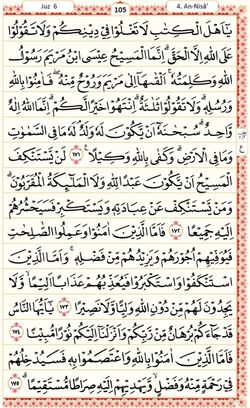 Juz 6
105
4. An-Nisā'
يٰٓاَهْلَ الْكِتٰبِ لَا تَغْلُوْا فِيْ دِيْنِكُمْ وَلَا تَقُوْلُوْا
عَلَى اللّٰهِ اِلَّا الْحَقَّۗ اِنَّمَا الْمَسِيْحُ عِيْسَى ابْنُ مَرْيَمَ رَسُوْلُ
اللّٰهِ وَكَلِمَتُهٗۚ اَلْقٰىهَآ اِلٰى مَرْيَمَ وَرُوْحٌ مِّنْهُۖ فَاٰمِنُوْا بِاللّٰهِ
وَرُسُلِهٖۗ وَلَا تَقُوْلُوْا ثَلٰثَةٌۗ اِنْتَهُوْا خَيْرًا لَّكُمْۗ اِنَّمَا اللّٰهُ اِلٰهٌ
وَّاحِدٌۗ سُبْحٰنَهٗٓ اَنْ يَّكُوْنَ لَهٗ وَلَدٌۘ لَهٗ مَا فِى السَّمٰوٰتِ
وَمَا فِى الْاَرْضِۗ وَكَفٰى بِاللّٰهِ وَكِيْلًا ۝١٧١ لَنْ يَّسْتَنْكِفَ
الْمَسِيْحُ اَنْ يَّكُوْنَ عَبْدًا لِّلّٰهِ وَلَا الْمَلٰۤىِٕكَةُ الْمُقَرَّبُوْنَۗ
وَمَنْ يَّسْتَنْكِفْ عَنْ عِبَادَتِهٖ وَيَسْتَكْبِرْ فَسَيَحْشُرُهُمْ
اِلَيْهِ جَمِيْعًا ۝١٧٢ فَاَمَّا الَّذِيْنَ اٰمَنُوْا وَعَمِلُوا الصّٰلِحٰتِ
فَيُوَفِّيْهِمْ اُجُوْرَهُمْ وَيَزِيْدُهُمْ مِّنْ فَضْلِهٖۚ وَاَمَّا الَّذِيْنَ
اسْتَنْكَفُوْا وَاسْتَكْبَرُوْا فَيُعَذِّبُهُمْ عَذَابًا اَلِيْمًاۙ وَّلَا
يَجِدُوْنَ لَهُمْ مِّنْ دُوْنِ اللّٰهِ وَلِيًّا وَّلَا نَصِيْرًا ۝١٧٣ يٰٓاَيُّهَا النَّاسُ
قَدْ جَاۤءَكُمْ بُرْهَانٌ مِّنْ رَّبِّكُمْ وَاَنْزَلْنَآ اِلَيْكُمْ نُوْرًا مُّبِيْنًا ۝١٧٤
فَاَمَّا الَّذِيْنَ اٰمَنُوْا بِاللّٰهِ وَاعْتَصَمُوْا بِهٖ فَسَيُدْخِلُهُمْ
فِيْ رَحْمَةٍ مِّنْهُ وَفَضْلٍۙ وَّيَهْدِيْهِمْ اِلَيْهِ صِرَاطًا مُّسْتَقِيْمًاۗ ۝١٧٥